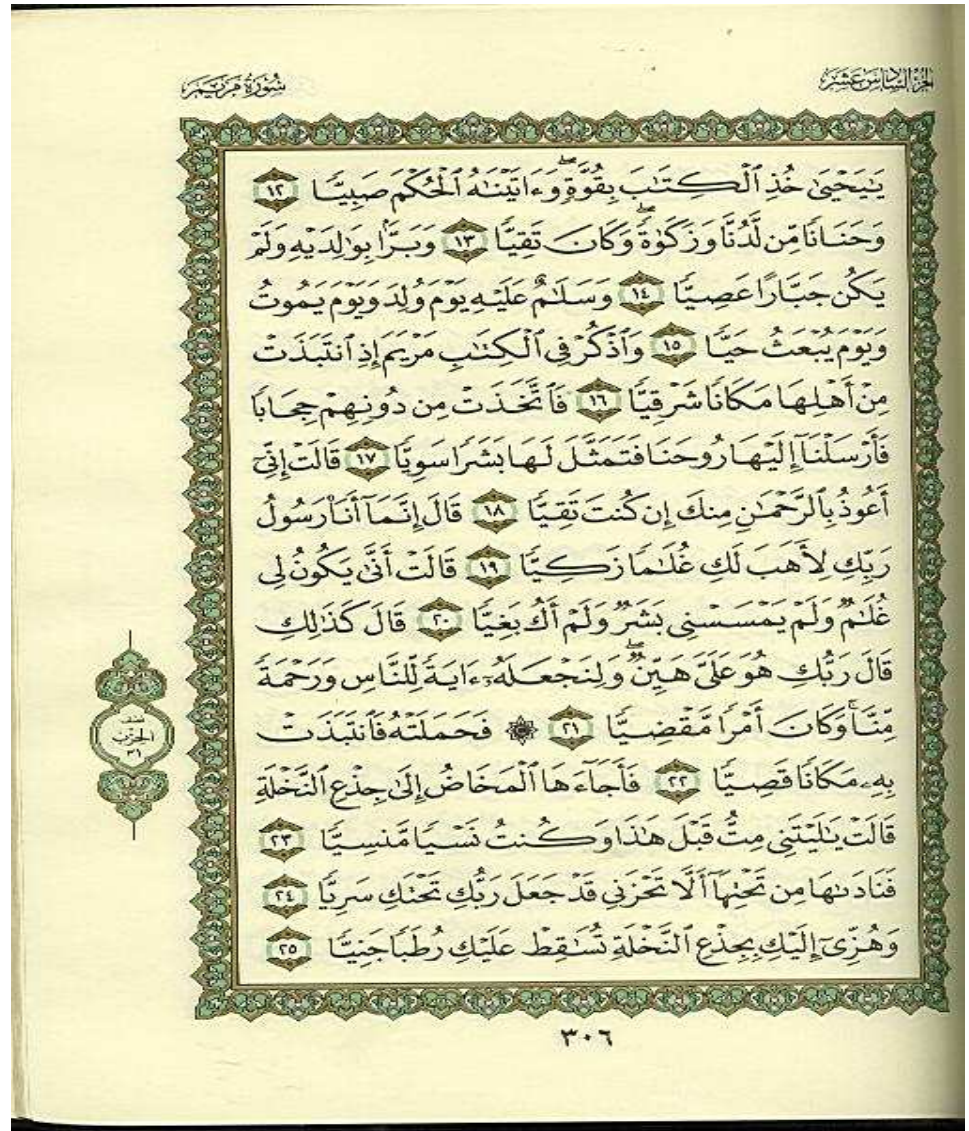 الجزء السادس عشر
سورة مريم
يَٰيَحۡيَىٰ خُذِ ٱلۡكِتَٰبَ بِقُوَّةٖۖ وَءَاتَيۡنَٰهُ ٱلۡحُكۡمَ صَبِيّٗا ١٢
وَحَنَانٗا مِّن لَّدُنَّا وَزَكَوٰةٗۖ وَكَانَ تَقِيّٗا ١٣ وَبَرَّۢا بِوَٰلِدَيۡهِ وَلَمۡ
يَكُن جَبَّارًا عَصِيّٗا ١٤ وَسَلَٰمٌ عَلَيۡهِ يَوۡمَ وُلِدَ وَيَوۡمَ يَمُوتُ
وَيَوۡمَ يُبۡعَثُ حَيّٗا ١٥ وَٱذۡكُرۡ فِي ٱلۡكِتَٰبِ مَرۡيَمَ إِذِ ٱنتَبَذَتۡ
مِنۡ أَهۡلِهَا مَكَانٗا شَرۡقِيّٗا ١٦ فَٱتَّخَذَتۡ مِن دُونِهِمۡ حِجَابٗا
فَأَرۡسَلۡنَآ إِلَيۡهَا رُوحَنَا فَتَمَثَّلَ لَهَا بَشَرٗا سَوِيّٗا ١٧ قَالَتۡ إِنِّيٓ
أَعُوذُ بِٱلرَّحۡمَٰنِ مِنكَ إِن كُنتَ تَقِيّٗا ١٨ قَالَ إِنَّمَآ أَنَا۠ رَسُولُ
رَبِّكِ لِأَهَبَ لَكِ غُلَٰمٗا زَكِيّٗا ١٩ قَالَتۡ أَنَّىٰ يَكُونُ لِي
غُلَٰمٞ وَلَمۡ يَمۡسَسۡنِي بَشَرٞ وَلَمۡ أَكُ بَغِيّٗا ٢٠ قَالَ كَذَٰلِكِ
قَالَ رَبُّكِ هُوَ عَلَيَّ هَيِّنٞۖ وَلِنَجۡعَلَهُۥٓ ءَايَةٗ لِّلنَّاسِ وَرَحۡمَةٗ
مِّنَّاۚ وَكَانَ أَمۡرٗا مَّقۡضِيّٗا ٢١ ۞ فَحَمَلَتۡهُ فَٱنتَبَذَتۡ
بِهِۦ مَكَانٗا قَصِيّٗا ٢٢ فَأَجَآءَهَا ٱلۡمَخَاضُ إِلَىٰ جِذۡعِ ٱلنَّخۡلَةِ
قَالَتۡ يَٰلَيۡتَنِي مِتُّ قَبۡلَ هَٰذَا وَكُنتُ نَسۡيٗا مَّنسِيّٗا ٢٣
فَنَادَىٰهَا مِن تَحۡتِهَآ أَلَّا تَحۡزَنِي قَدۡ جَعَلَ رَبُّكِ تَحۡتَكِ سَرِيّٗا ٢٤
وَهُزِّيٓ إِلَيۡكِ بِجِذۡعِ ٱلنَّخۡلَةِ تُسَٰقِطۡ عَلَيۡكِ رُطَبٗا جَنِيّٗا ٢٥
نصف
الحزب
٣١
٣٠٦